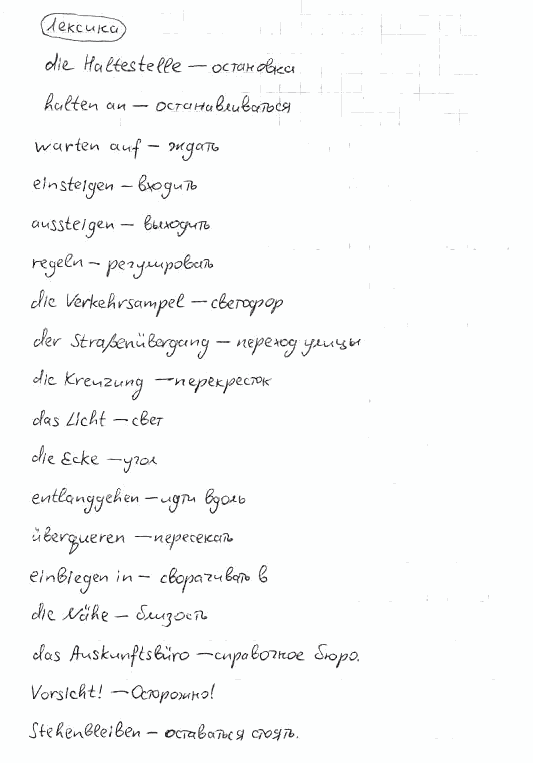 Лексика
die Haltestelle — остановка
halten an — останавливаться
warten auf — ждать
einsteigen — входить
aussteigen — выходить
regeln — регулировать
die Verkehrsampel — светофор
der Straßenübergang — переход улицы
die Kreuzung — перекресток
das Licht — свет
die Ecke — угол
entlanggehen — идти вдоль
überqueren — пересекать
einbiegen in — сворачивать в
die Nähe — близость
das Auskunftsbüro — справочное бюро.
Vorsicht! — Осторожно!
Stehenbleiben — оставаться стоять.